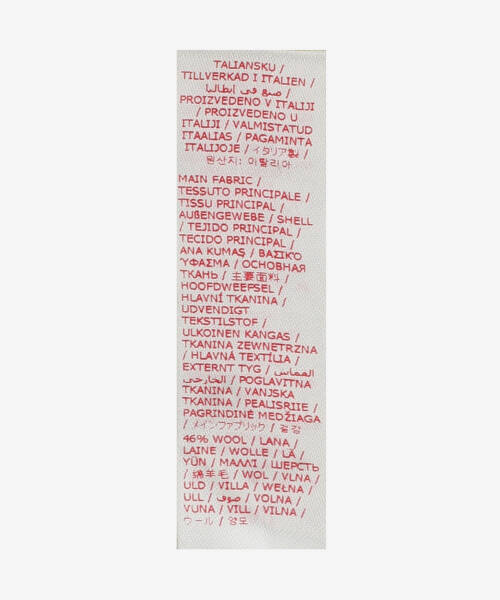 TALIANSKU /
TILLVERKAD I ITALIEN /
صنع في ايطاليا /
PROIZVEDENO V ITALIJI
/ PROIZVEDENO U
ITALIJI / VALMISTATUD
ITAALIAS / PAGAMINTA
ITALIJOJE / イタリア製 /
원산지: 이탈리아
MAIN FABRIC /
TESSUTO PRINCIPALE /
TISSU PRINCIPAL /
AUßENGEWEBE / SHELL
/ TEJIDO PRINCIPAL /
TECIDO PRINCIPAL /
ANA KUMAŞ / ΒΑΣΙΚΌ
ΎΦΑΣΜΑ / ОСНОВНАЯ
ТКАНЬ / 主要面料 /
HOOFDWEEFSEL /
HLAVNÍ TKANINA /
UDVENDIGT
TEKSTILSTOF /
ULKOINEN KANGAS /
TKANINA ZEWNĘTRZNA
/ HLAVNÁ TEXTÍLIA /
EXTERNT TYG / القماش
الخارجي / POGLAVITNA
TKANINA / VANJSKA
TKANINA / PEALISRIIE /
PAGRINDINĖ MEDŽIAGA
/ メインファブリック / 겉감
46% WOOL / LANA /
LAINE / WOLLE / LÃ /
YÜN / ΜΑΛΛΊ / ШЕРСТЬ
/ 绵羊毛 / WOL / VLNA /
ULD / VILLA / WEŁNA /
ULL / صوف / VOLNA /
VUNA / VILL / VILNA /
ウール / 양모